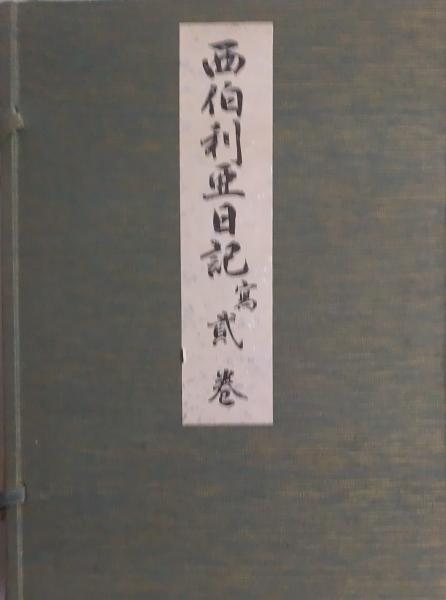 西伯利亜日記寫貳巻